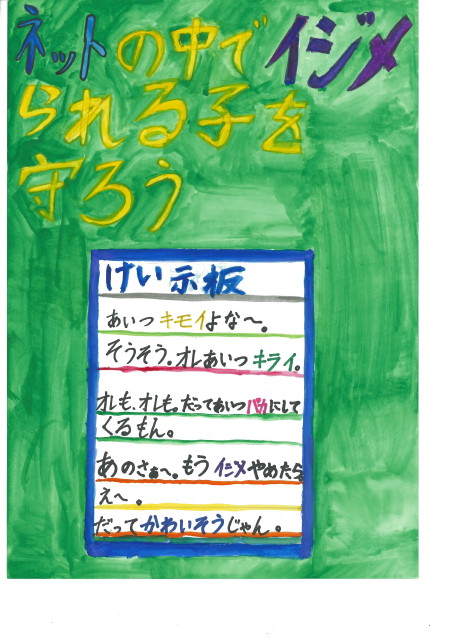 ネットの中でイジメ
られる子を
守ろう
けい示板
あいつキモイよな〜。
そうそう。オレあいつキライ。
オレも、オレも。だってあいつバカにして
くるもん。
あのさぁ〜。もうイジメやめたら。
え〜。
だってかわいそうじゃん。